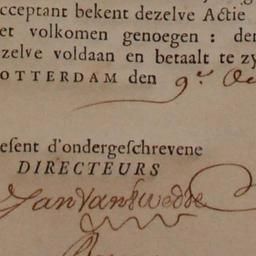 cceptant bekent dezelve Actie
et volkomen genoegen : der
zelve voldaan en betaalt te zy
OTTERDAM den 9.e Oc
esent d'ondergeschrevene
DIRECTEURS
Jan Van